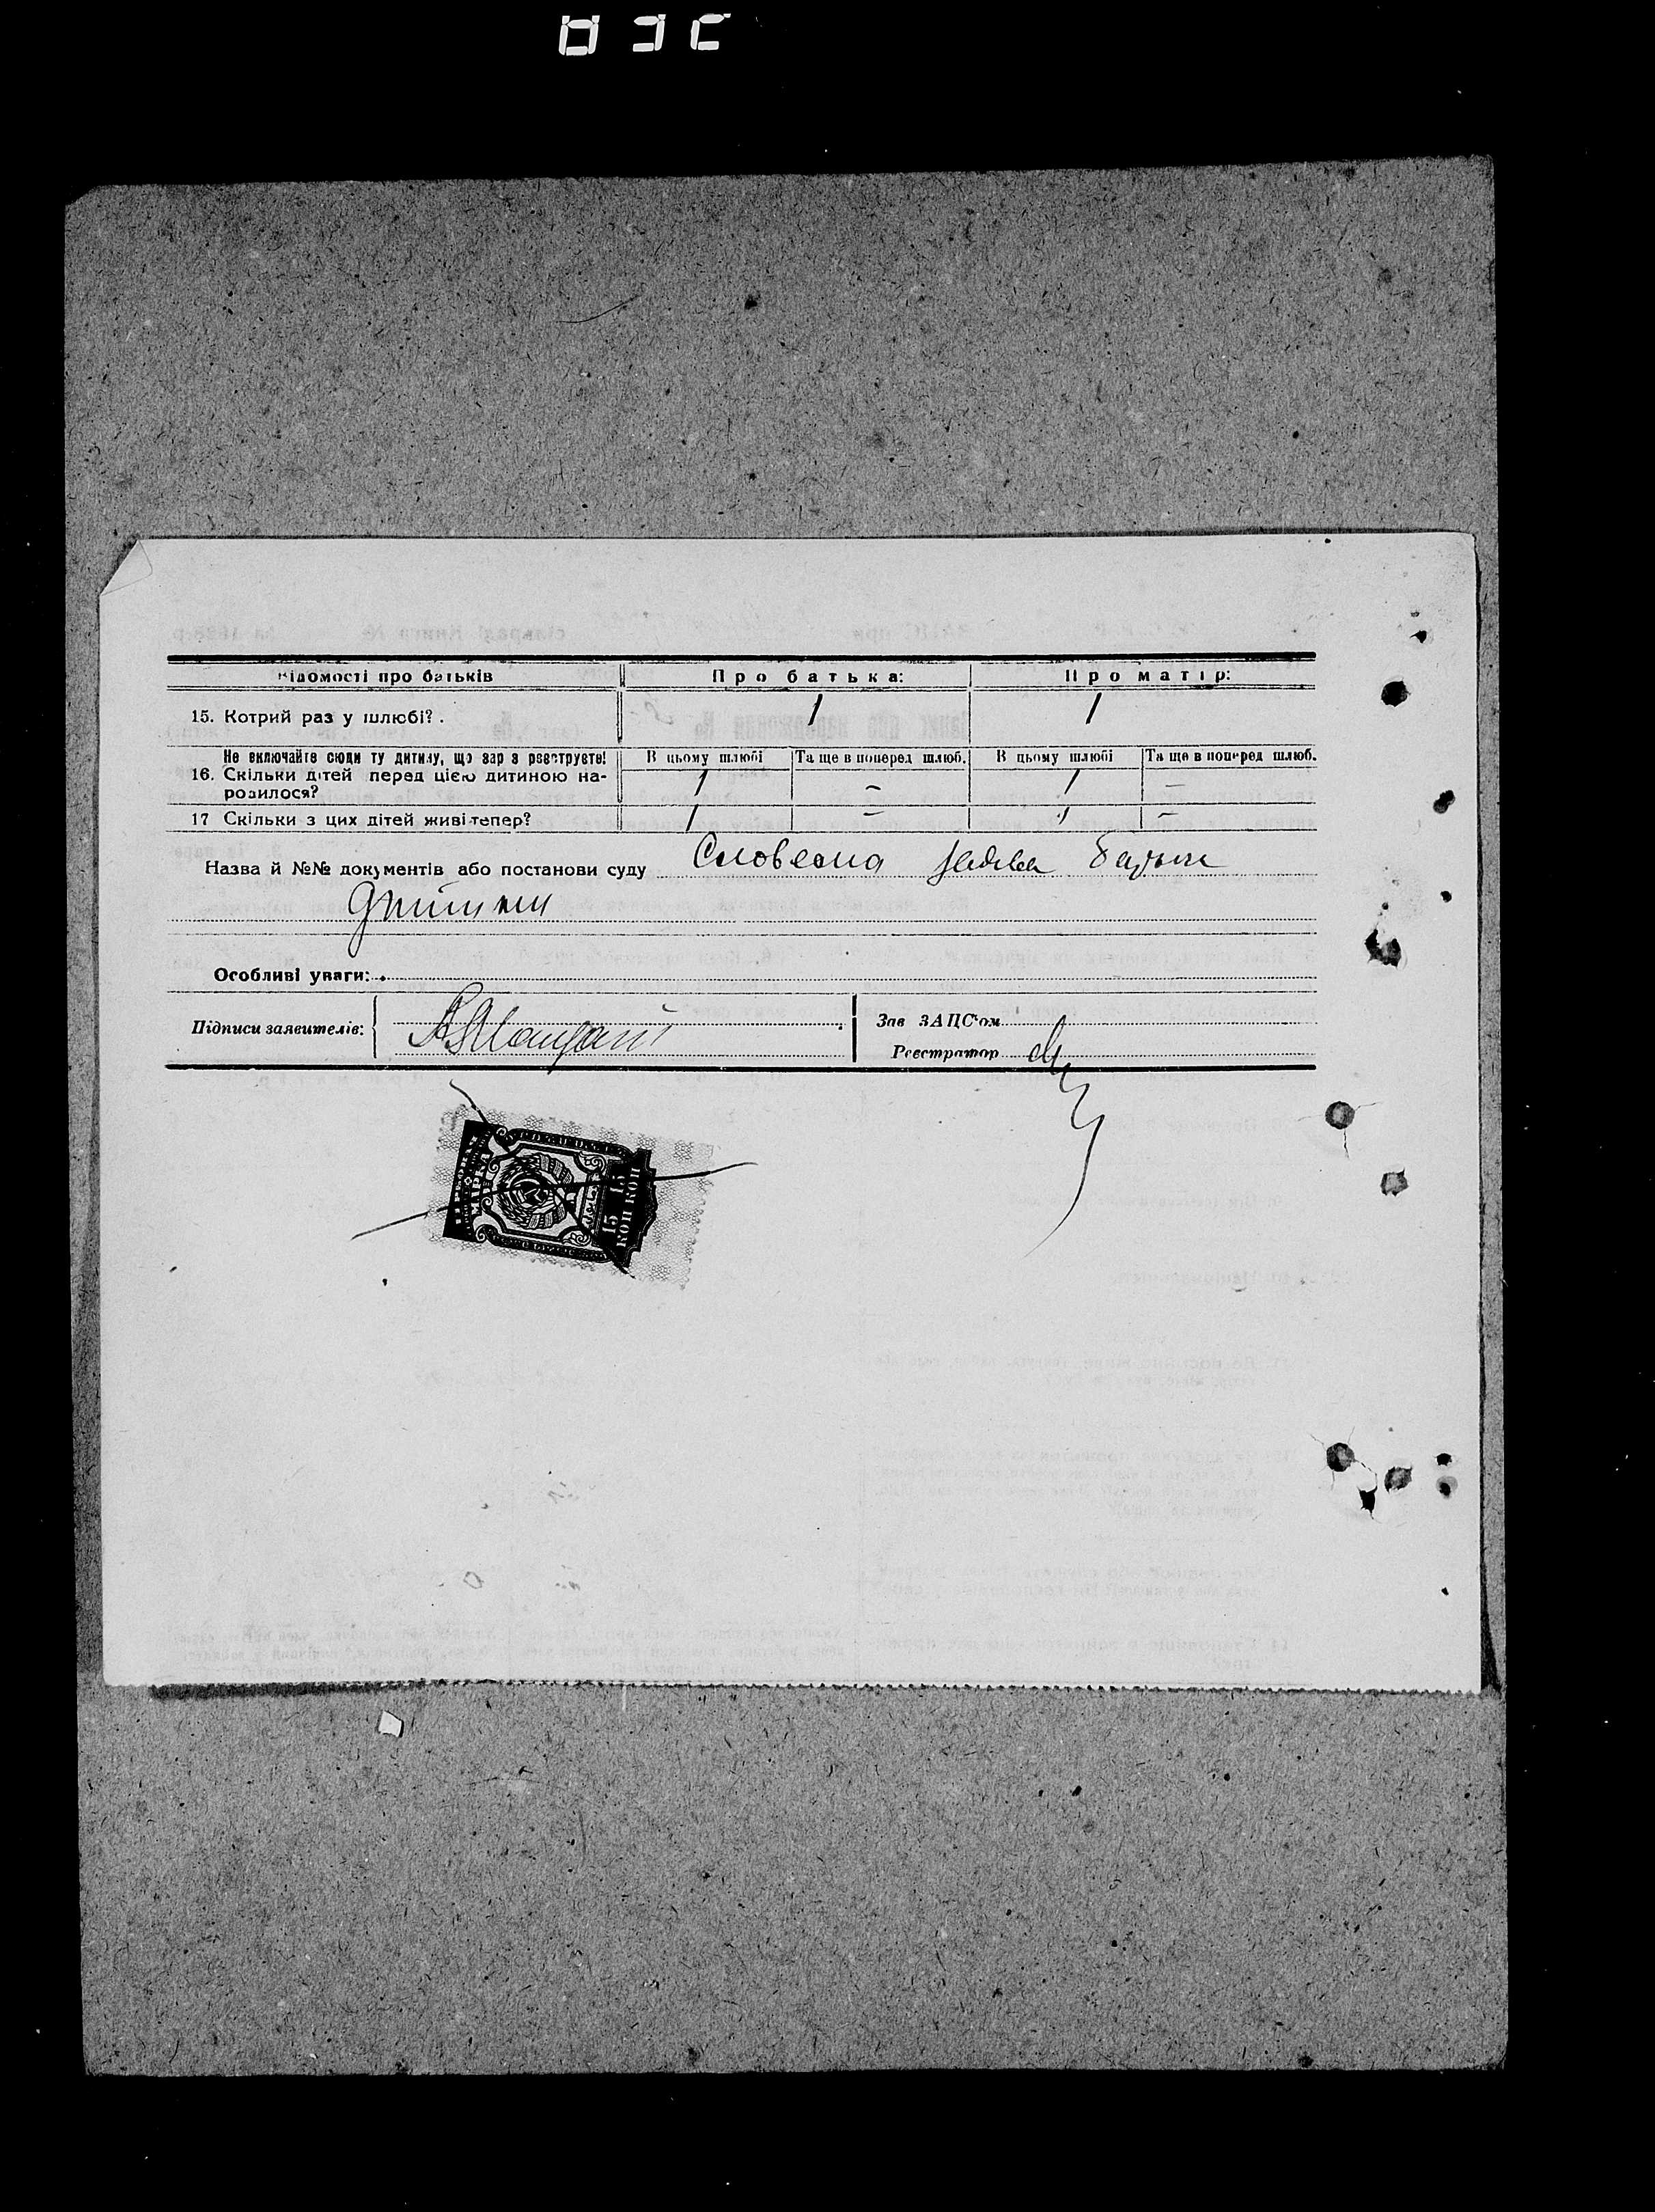 Відомості про батьків Про батька: Про матір:
15. Котрий раз у шлюбі? . 1 1
Не включайте сюди ту дитину, що зараз реєструєте! В цьому шлюбі Та ще в поперед. шлюб. В цьому шлюбі Та ще в поперед. шлюб.
16. Скільки дітей перед цією дитиною на-
родилося? 1 – 1 –
17 Скільки з цих дітей живі тепер? 1 – 1 –
Назва й №№ документів або постанови суду Словесна заява батька
дитини
Особливі уваги:
Підписи заявителів:
Зав ЗАГС'ом
Реєстратор
МАРКА
15 15
КОП КОП